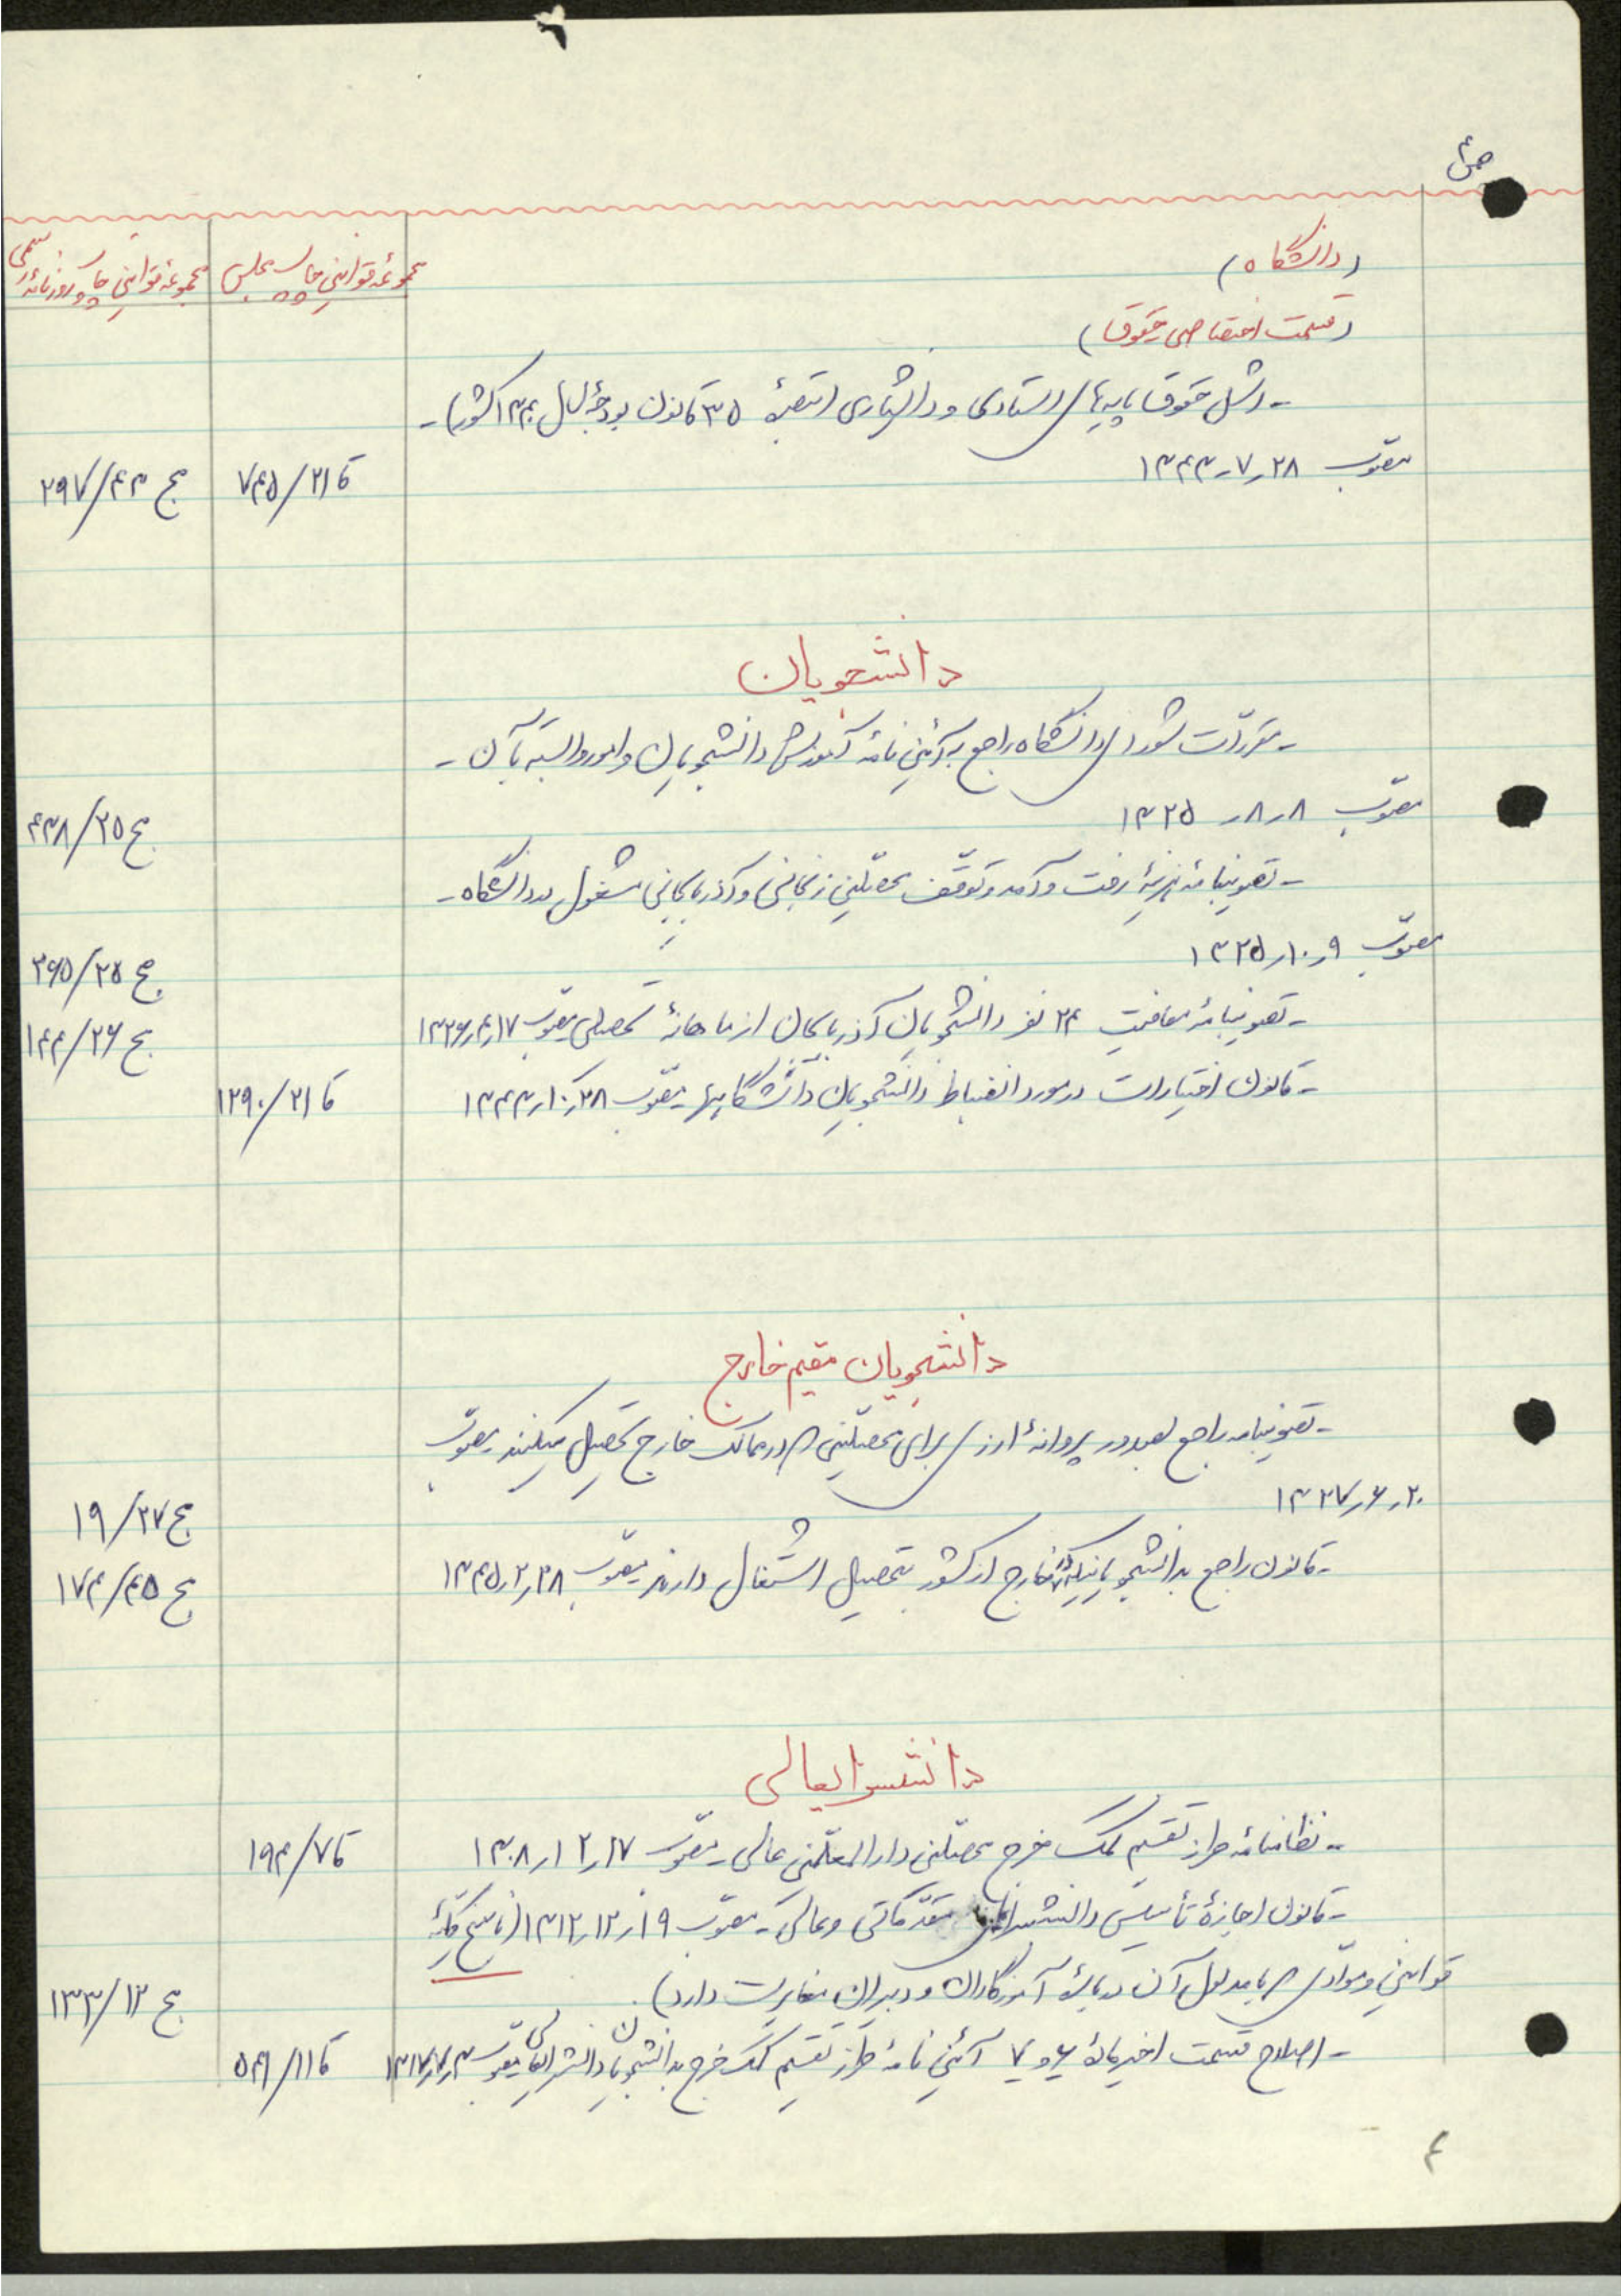 ص۴
مجموعه قوانین چاپ مجلس
مجموعه قوانین چاپ روزنامه رسمی
(دانشگاه)
(قسمت اختصاصی حقوق)
- اشل حقوق پایه‌های استادی و دانشیاری (تبصرهٔ ۳۵ قانون بودجهٔ سال ۱۳۴۳ کشور) -
مصوّب ۲۸ر۷ر۱۳۴۳
قا ۲۱/۷۴۵
مج ۴۳/۲۹۷
دانشجویان
- مقرّرات شورای دانشگاه راجع به آئین نامهٔ آموزش دانشجویان و امور وابسته بآن -
مصوّب ۸ر۸ر۱۳۲۵
مج ۲۵/۴۳۸
- تصویبنامه هزینهٔ رفت و آمد و توقّف محصّلین زنجانی و آذربایجانی مشغول در دانشگاه -
مصوّب ۹ر۱۰ر۱۳۲۵
مج ۲۵/۳۶۵
- تصویبنامه معافیت ۲۴ نفر دانشجویان آذربایجان از ماهانهٔ تحصیلی مصوّب ۱۷ر۴ر۱۳۲۶
مج ۲۶/۱۴۴
- قانون اختیارات در مورد انضباط دانشجویان دانشگاهها مصوّب ۲۸ر۱۰ر۱۳۴۳
قا ۲۱/۱۲۹۰
دانشجویان مقیم خارج
- تصویبنامه راجع بصدور پروانهٔ ارز برای محصّلینی که در ممالک خارج تحصیل میکنند مصوّب
۲۰ر۶ر۱۳۲۷
مج ۲۷/۱۹
- قانون راجع بدانشجویانیکه در خارج از کشور بتحصیل اشتغال دارند مصوّب ۲۸ر۲ر۱۳۴۵
مج ۴۵/۱۷۴
دانشسرایعالی
- نظامنامه طرز تقسیم کمک خرج محصّلین دارالمعلّمین عالی مصوّب ۱۷ر۱۲ر۱۳۰۸
قا ۷/۱۹۴
- قانون اجازهٔ تأسیس دانشسراهای مقدّماتی و عالی - مصوّب ۱۹ر۱۲ر۱۳۱۲ (ناسخ کلیّهٔ
قوانین و موادّی که با مدلول آن دربارهٔ آموزگاران و دبیران مغایرت دارد).
مج ۱۲/۱۳۳
- اصلاح قسمت اخیر مادهٔ ۶ و ۷ آئین نامهٔ طرز تقسیم کمک خرج بدانشجویان دانشسرایعالی مصوّب
قا ۱۱/۵۴۱
۴